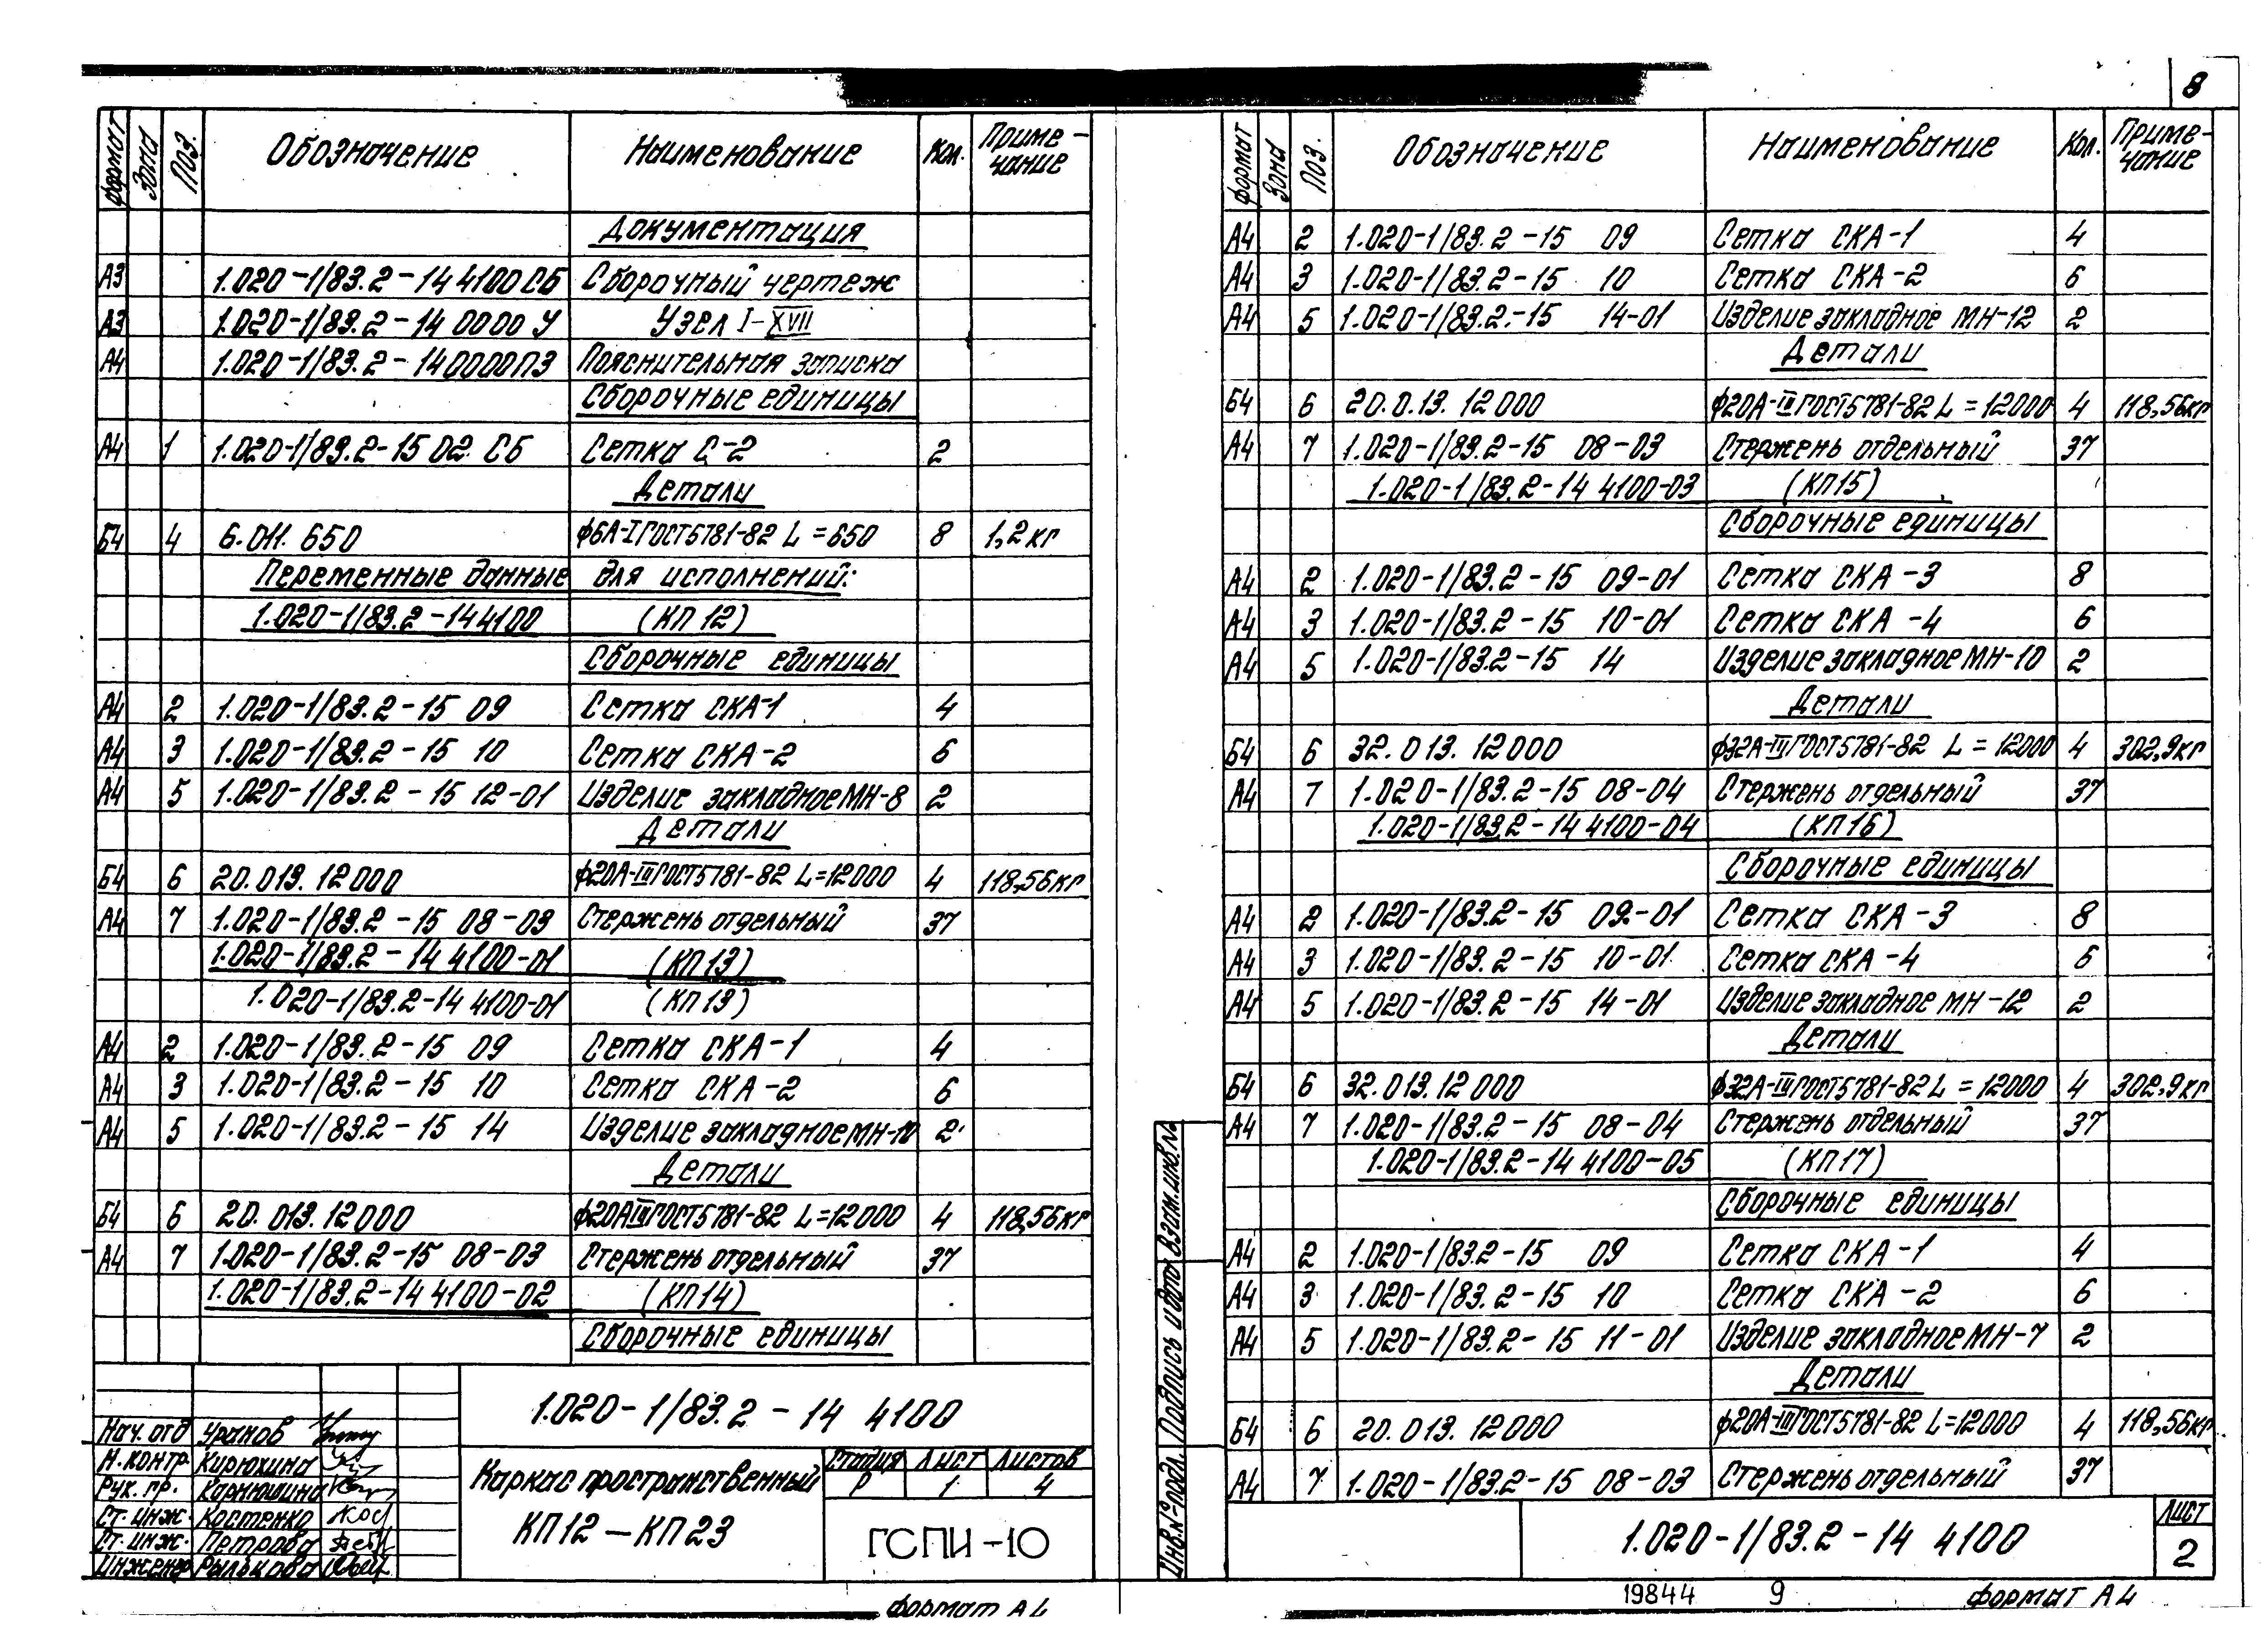 8
формат Зона Поз. Обозначение Наименование Кол. Приме-чание
Документация
А3 1.020-1/83.2-14 4100 СБ Сборочный чертеж
А3 1.020-1/83.2-14 0000 У Узел I-XVII
А4 1.020-1/83.2-14 0000ПЗ Пояснительная записка
Сборочные единицы
А4 1 1.020-1/83.2-15 02. СБ Сетка С-2 2
Детали
Б4 4 6.011.650 ф6А-I ГОСТ5781-82 L=650 8 1,2кг
Переменные данные для исполнений:
1.020-1/83.2-14 4100 (КП 12)
Сборочные единицы
А4 2 1.020-1/83.2-15 09 Сетка СКА-1 4
А4 3 1.020-1/83.2-15 10 Сетка СКА-2 6
А4 5 1.020-1/83.2-15 12-01 Изделие закладное МН-8 2
Детали
Б4 6 20.013.12000 ф20А-III ГОСТ5781-82 L=12000 4 118,56кг
А4 7 1.020-1/83.2-15 08-03 Стержень отдельный 37
1.020-1/83.2-14 4100-01 (КП13)
1.020-1/83.2-14 4100-01 (КП13)
А4 2 1.020-1/83.2-15 09 Сетка СКА-1 4
А4 3 1.020-1/83.2-15 10 Сетка СКА-2 6
А4 5 1.020-1/83.2-15 14 Изделие закладное МН-10 2
Детали
Б4 6 20.013.12000 ф20АIII ГОСТ5781-82 L=12000 4 118,56кг
А4 7 1.020-1/83.2-15 08-03 Стержень отдельный 37
1.020-1/83.2-14 4100-02 (КП14)
Сборочные единицы
1.020-1/83.2-14 4100
Нач.отд Уранов
Н.контр. Кирюхина
Рук.пр. Карнюшина
Ст.инж. Костенко
Ст.инж. Петрова
Инженер Рылькова
Каркас пространственный
КП12-КП23
Стадия Лист Листов
Р 1 4
ГСПИ-10
формат А4
формат Зона Поз. Обозначение Наименование Кол. Приме-чание
А4 2 1.020-1/83.2-15 09 Сетка СКА-1 4
А4 3 1.020-1/83.2-15 10 Сетка СКА-2 6
А4 5 1.020-1/83.2-15 14-01 Изделие закладное МН-12 2
Детали
Б4 6 20.0.13.12000 ф20А-III ГОСТ5781-82 L=12000 4 118,56кг
А4 7 1.020-1/83.2-15 08-03 Стержень отдельный 37
1.020-1/83.2-14 4100-03 (КП15)
Сборочные единицы
А4 2 1.020-1/83.2-15 09-01 Сетка СКА-3 8
А4 3 1.020-1/83.2-15 10-01 Сетка СКА-4 6
А4 5 1.020-1/83.2-15 14 Изделие закладное МН-10 2
Детали
Б4 6 32.013.12000 ф32А-III ГОСТ5781-82 L=12000 4 302,9кг
А4 7 1.020-1/83.2-15 08-04 Стержень отдельный 37
1.020-1/83.2-14 4100-04 (КП16)
Сборочные единицы
А4 2 1.020-1/83.2-15 09-01 Сетка СКА-3 8
А4 3 1.020-1/83.2-15 10-01 Сетка СКА-4 6
А4 5 1.020-1/83.2-15 14-01 Изделие закладное МН-12 2
Детали
Б4 6 32.013.12000 ф32А-III ГОСТ5781-82 L=12000 4 302,9кг
А4 7 1.020-1/83.2-15 08-04 Стержень отдельный 37
1.020-1/83.2-14 4100-05 (КП17)
Сборочные единицы
А4 2 1.020-1/83.2-15 09 Сетка СКА-1 4
А4 3 1.020-1/83.2-15 10 Сетка СКА-2 6
А4 5 1.020-1/83.2-15 11-01 Изделие закладное МН-7 2
Детали
Б4 6 20.013.12000 ф20А-III ГОСТ5781-82 L=12000 4 118,56кг
А4 7 1.020-1/83.2-15 08-03 Стержень отдельный 37
Инв.№подл. Подпись и дата Взам.инв.№
1.020-1/83.2-14 4100
Лист
2
19844 9 формат А4